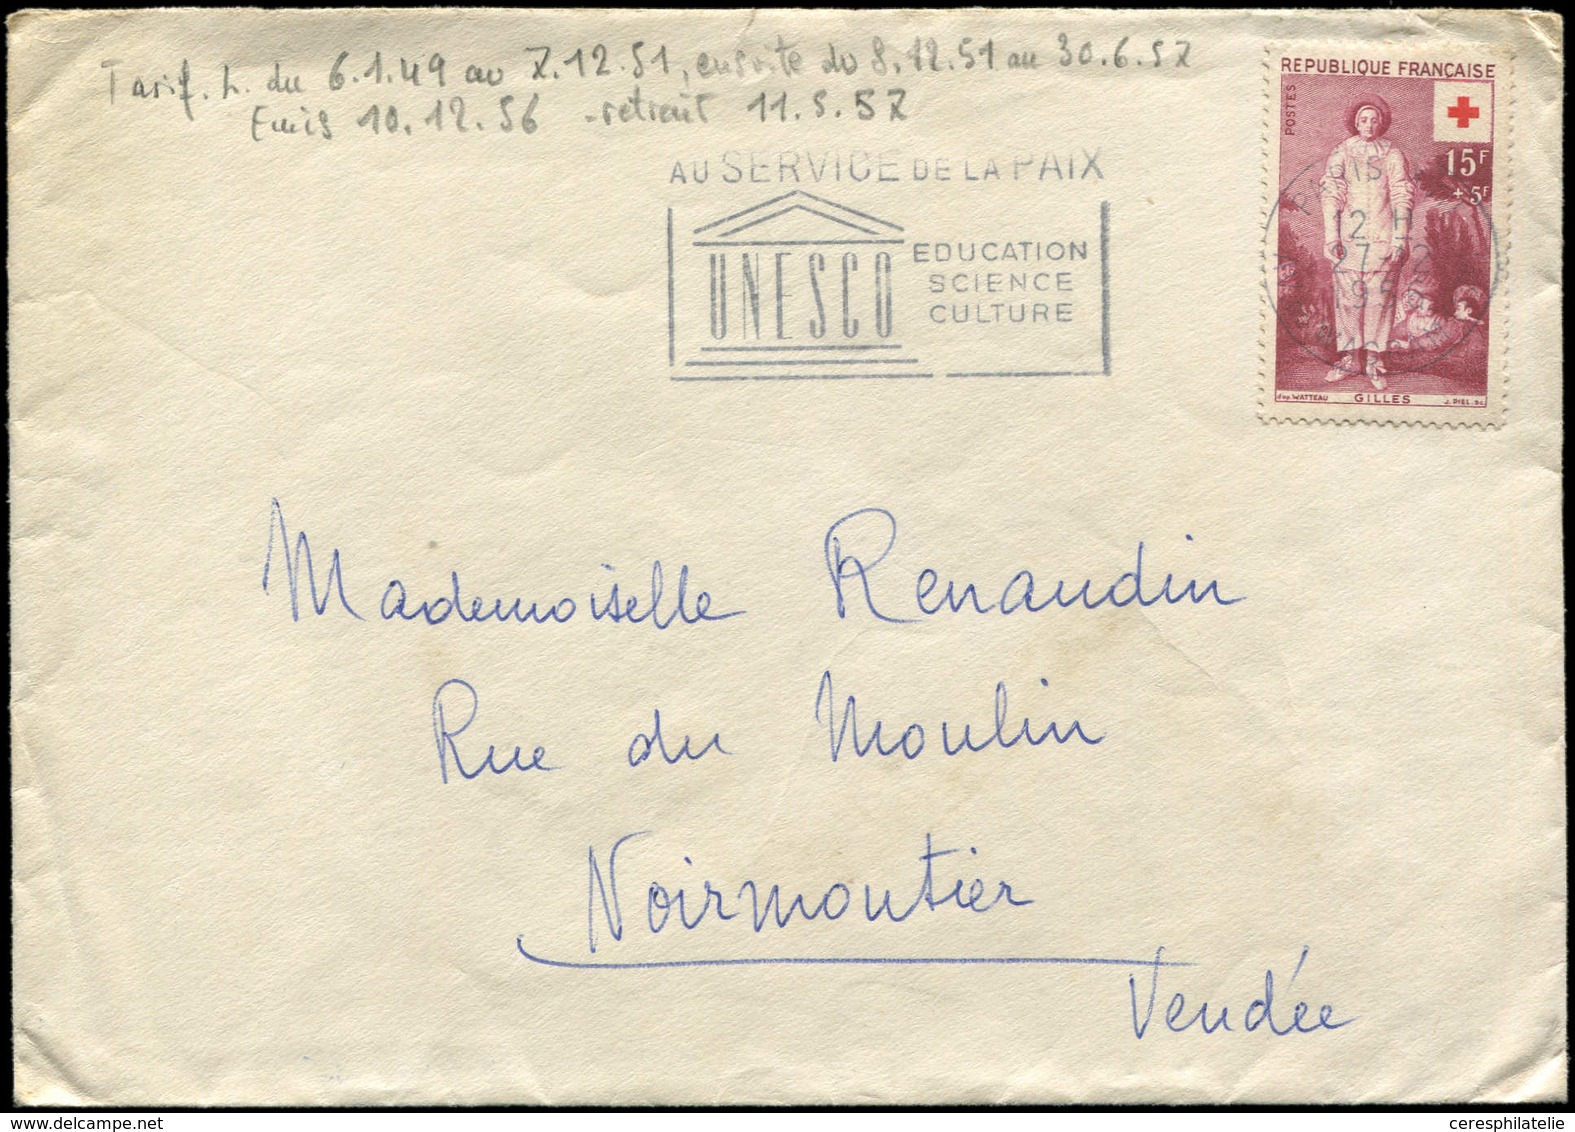 Tarif. L. du 6.1.49 au 7.12.51, ensuite du 8.12.51 au 30.6.57
Emis 10.12.56 - retrait 11.5.57
AU SERVICE DE LA PAIX
UNESCO
EDUCATION
SCIENCE
CULTURE
REPUBLIQUE FRANÇAISE
POSTES
15F
+ 5F
PARIS
12 H
27-12
195
d'ap. WATTEAU GILLES J. PIEL. sc.
Mademoiselle Renaudin
Rue du Moulin
Noirmoutier
Vendée
ceresphilatelie